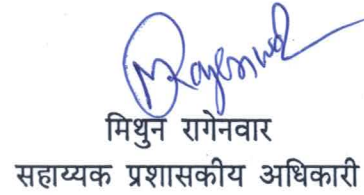 मिथुन रागेनवार
सहाय्यक प्रशासकीय अधिकारी